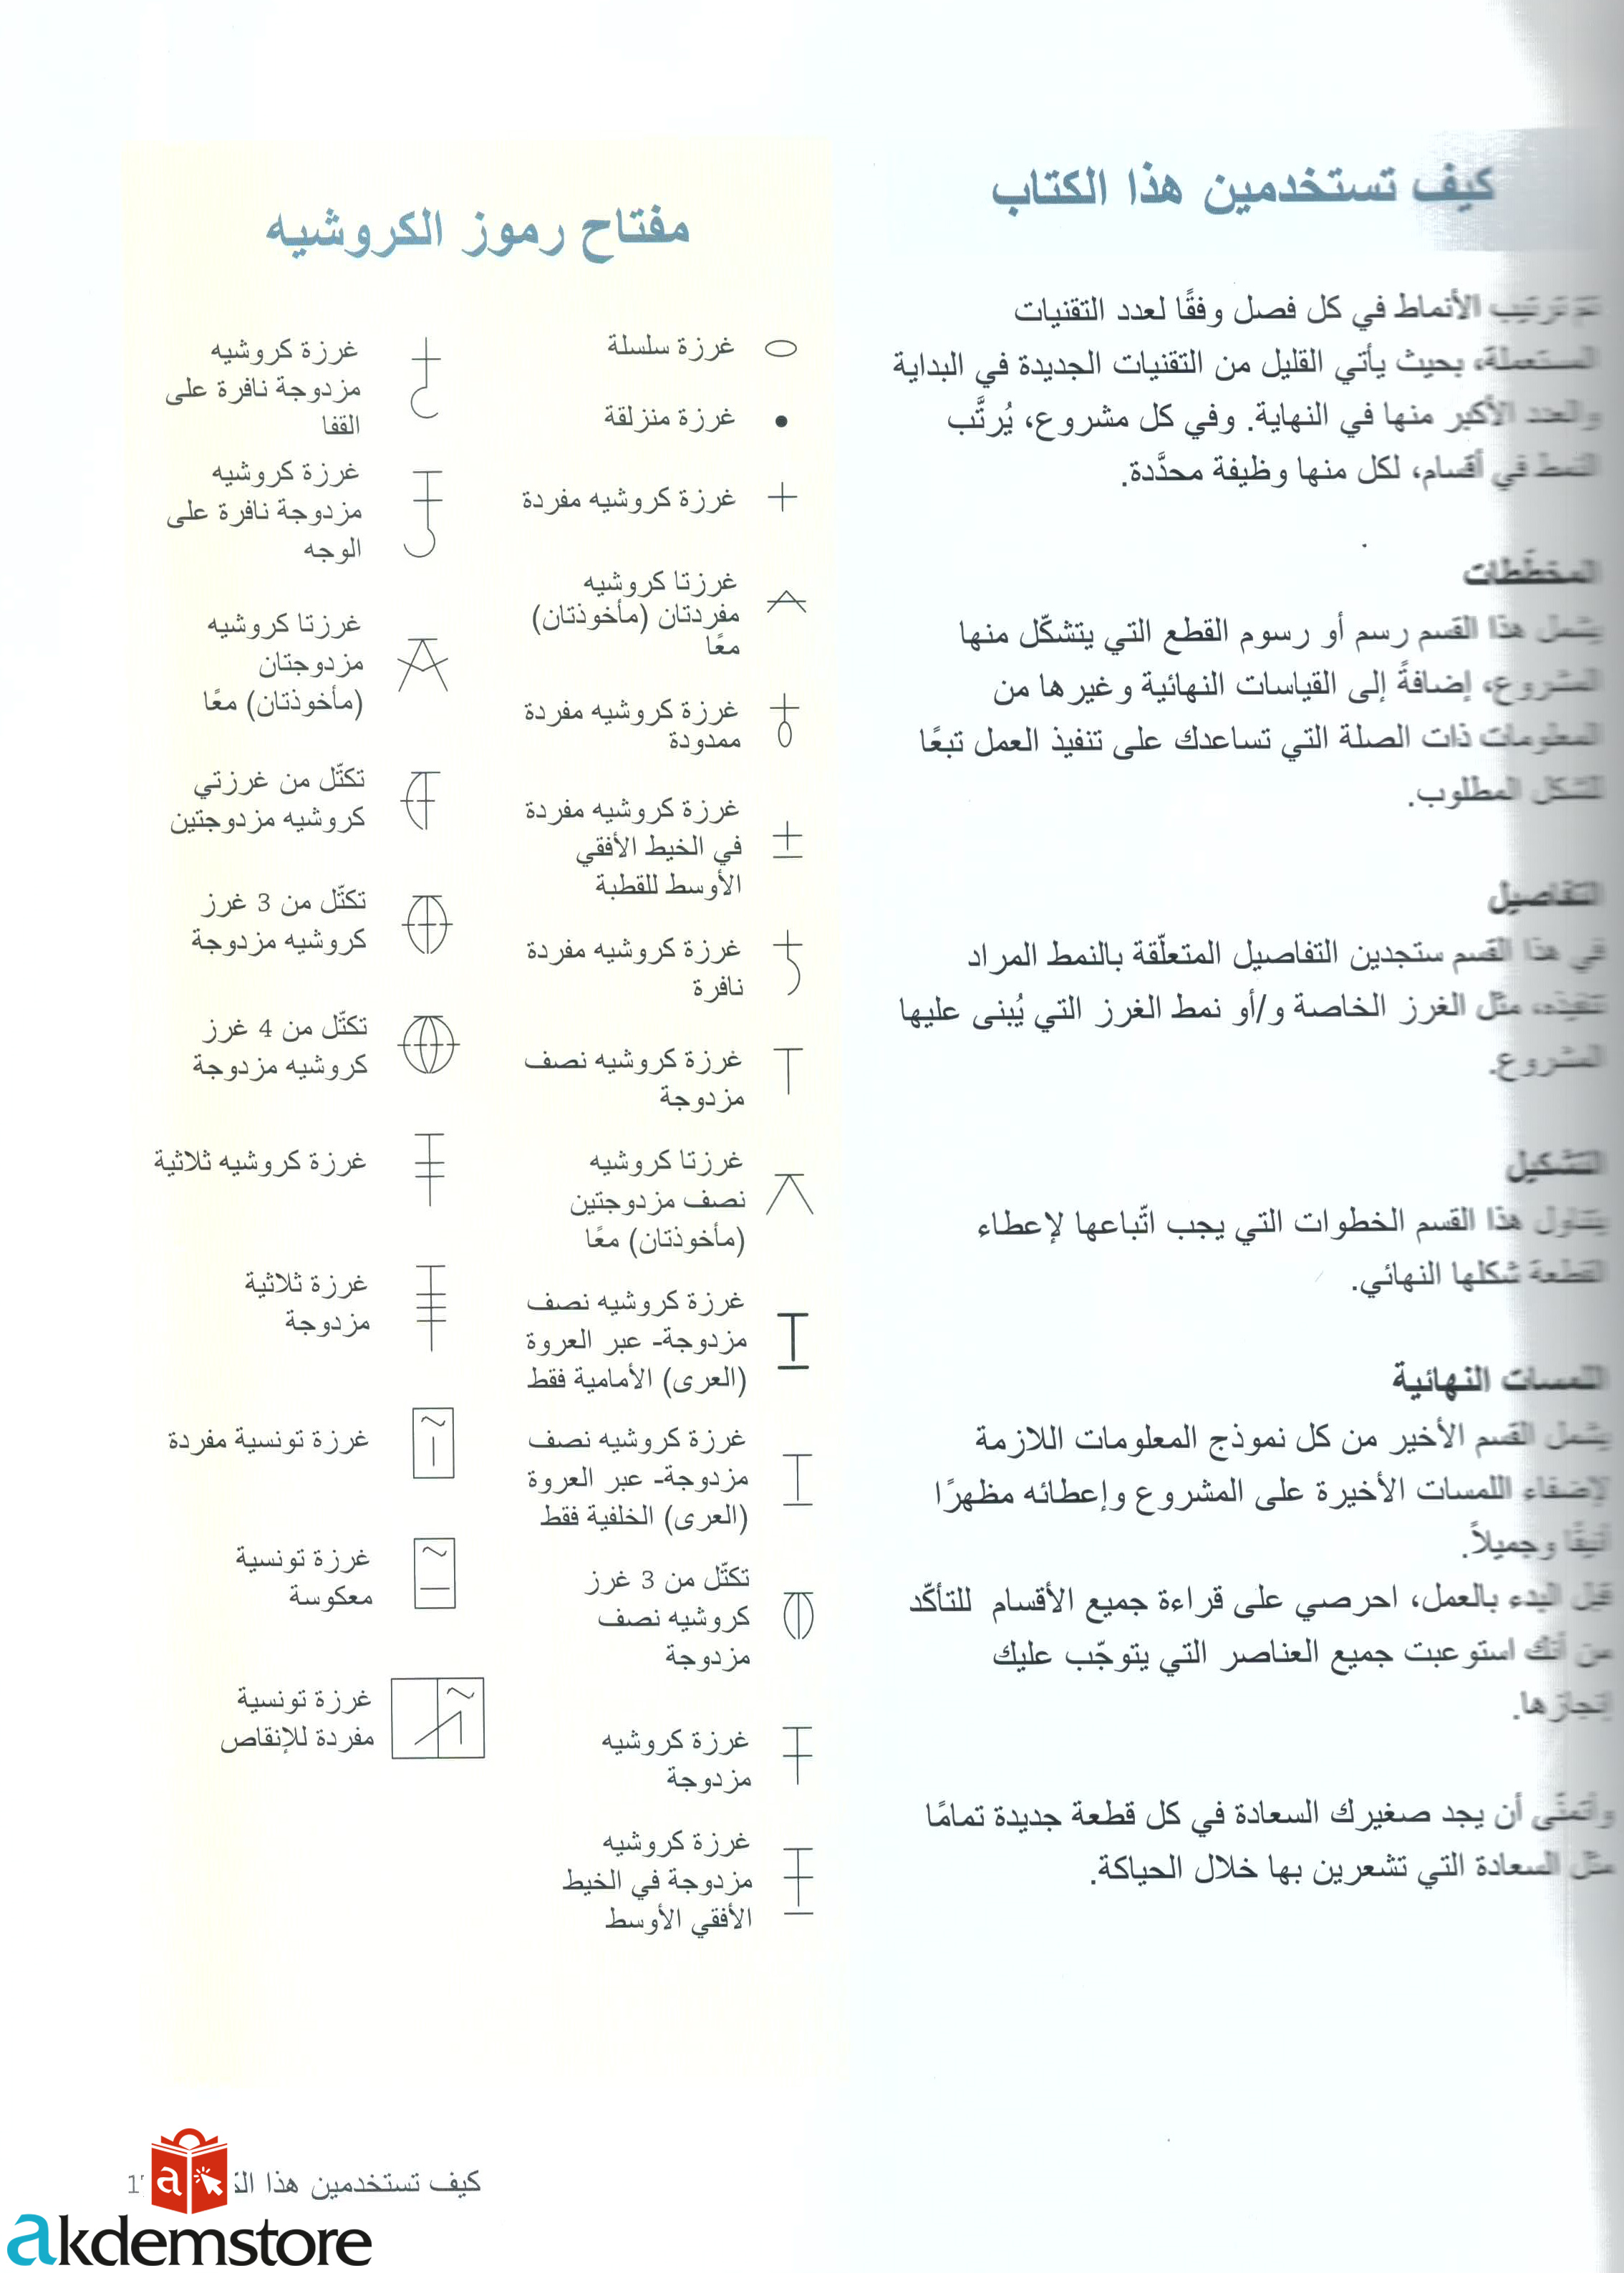 كيف تستخدمين هذا الكتاب
تم ترتيب الأنماط في كل فصل وفقًا لعدد التقنيات
المستعملة، بحيث يأتي القليل من التقنيات الجديدة في البداية
والعدد الأكبر منها في النهاية. وفي كل مشروع، يُرتَّب
النمط في أقسام، لكل منها وظيفة محدَّدة.
المخطّطات
يشمل هذا القسم رسم أو رسوم القطع التي يتشكّل منها
المشروع، إضافةً إلى القياسات النهائية وغيرها من
المعلومات ذات الصلة التي تساعدك على تنفيذ العمل تبعًا
للشكل المطلوب.
التفاصيل
في هذا القسم ستجدين التفاصيل المتعلّقة بالنمط المراد
تنفيذه، مثل الغرز الخاصة و/أو نمط الغرز التي يُبنى عليها
المشروع.
التشكيل
يتناول هذا القسم الخطوات التي يجب اتّباعها لإعطاء
القطعة شكلها النهائي.
اللمسات النهائية
يشمل القسم الأخير من كل نموذج المعلومات اللازمة
لإضفاء اللمسات الأخيرة على المشروع وإعطائه مظهرًا
أنيقًا وجميلاً.
قبل البدء بالعمل، احرصي على قراءة جميع الأقسام للتأكّد
من أنك استوعبت جميع العناصر التي يتوجّب عليك
إنجازها.
وأتمنّى أن يجد صغيرك السعادة في كل قطعة جديدة تمامًا
مثل السعادة التي تشعرين بها خلال الحياكة.
مفتاح رموز الكروشيه
غرزة سلسلة
غرزة منزلقة
غرزة كروشيه مفردة
غرزتا كروشيه
مفردتان (مأخوذتان)
معًا
غرزة كروشيه مفردة
ممدودة
غرزة كروشيه مفردة
في الخيط الأفقي
الأوسط للقطبة
غرزة كروشيه مفردة
نافرة
غرزة كروشيه نصف
مزدوجة
غرزتا كروشيه
نصف مزدوجتين
(مأخوذتان) معًا
غرزة كروشيه نصف
مزدوجة- عبر العروة
(العرى) الأمامية فقط
غرزة كروشيه نصف
مزدوجة- عبر العروة
(العرى) الخلفية فقط
تكتّل من 3 غرز
كروشيه نصف
مزدوجة
غرزة كروشيه
مزدوجة
غرزة كروشيه
مزدوجة في الخيط
الأفقي الأوسط
غرزة كروشيه
مزدوجة نافرة على
القفا
غرزة كروشيه
مزدوجة نافرة على
الوجه
غرزتا كروشيه
مزدوجتان
(مأخوذتان) معًا
تكتّل من غرزتي
كروشيه مزدوجتين
تكتّل من 3 غرز
كروشيه مزدوجة
تكتّل من 4 غرز
كروشيه مزدوجة
غرزة كروشيه ثلاثية
غرزة ثلاثية
مزدوجة
غرزة تونسية مفردة
غرزة تونسية
معكوسة
غرزة تونسية
مفردة للإنقاص
كيف تستخدمين هذا
akdemstore